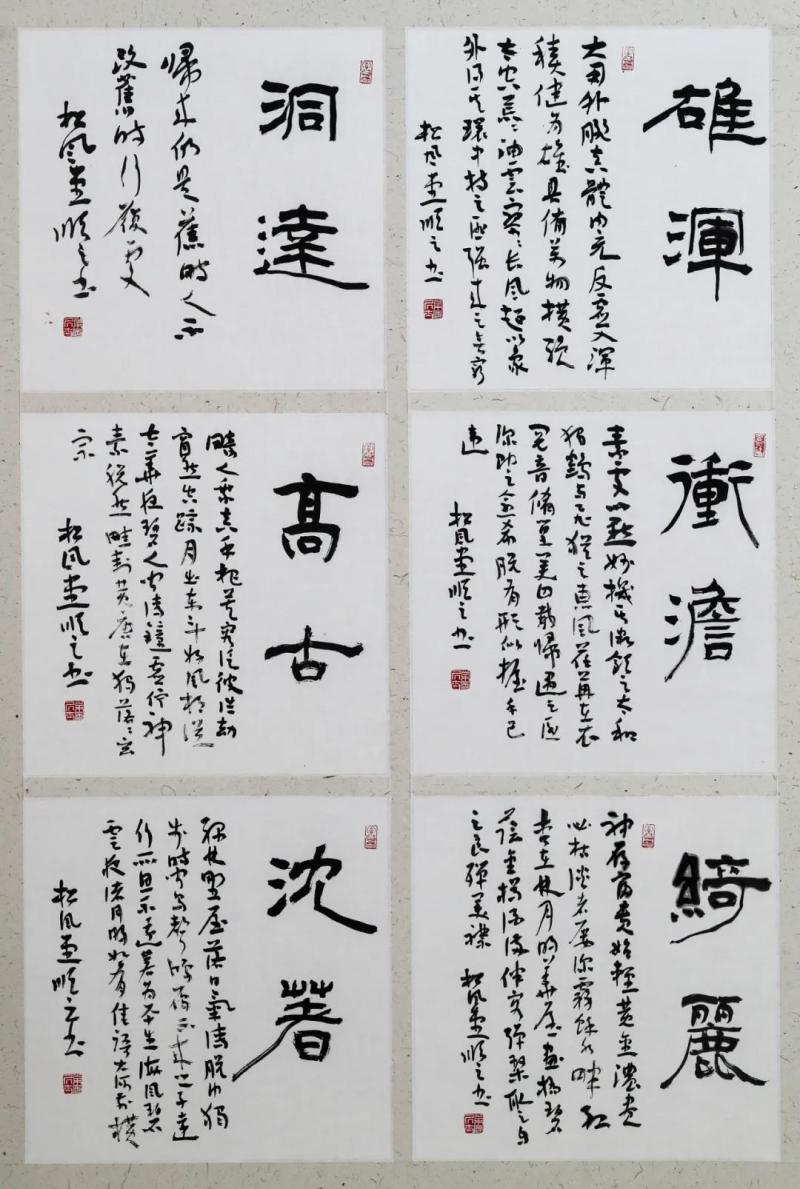 雄渾
大用外腓真體內充反虛入渾
積健為雄具備萬物橫絕
太空荒〻油雲寥〻長風超以象
外得其環中持之匪強來之無窮
松風堂順之書
衝澹
素處以默妙機其微飲之太和
獨鶴與飛猶之惠風荏苒在衣
閱音修篁美曰載歸遇之匪
深即之愈希脫有形似握手已
違
松風堂順之書
綺麗
神存富貴始輕黃金濃盡
必枯淡者屢深霧餘水畔紅
杏在林月明華屋畫橋碧
蔭金樽酒滿伴客彈琴取之自
足良殫美襟
松風堂順之書
洞達
歸來仍是舊時人不
改舊時行履處
松風堂順之書
高古
畸人乘真手把芙蓉泛彼浩劫
窅然空蹤月出東斗好風相從
太華夜碧人聞清鐘虛佇神
素脫然畦封黃唐在獨落〻玄
宗
松風堂順之書
沈著
綠林野屋落日氣清脫巾獨
步時聞鳥聲鴻雁不來之子遠
行所思不遠若為平生海風碧
雲夜渚月明如有佳語大河前橫
松風堂順之書